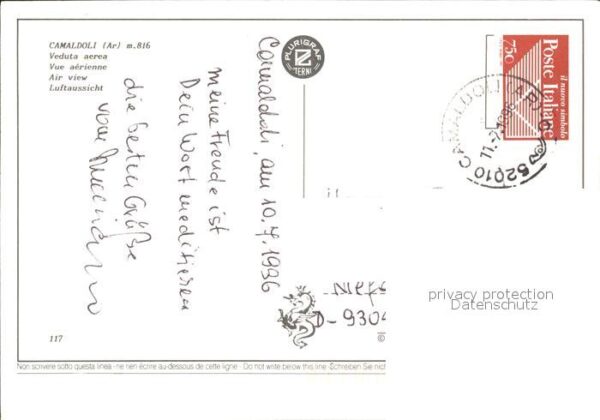 CAMALDOLI (Ar) m.816
Veduta aerea
Vue aérienne
Air view
Luftaussicht
PLURIGRAF
TERNI
750
Poste Italiane
il nuovo simbolo
52010 CAMALDOLI (AR)
11.-7.1996
Camaldoli, am 10.7.1996
meine Freude ist
Dein Wort meditieren
die besten Grüße
von
D-9304
privacy protection
Datenschutz
117
©
Non scrivere sotto questa linea - ne rien écrire au-dessous de cette ligne - Do not write below this line - Schreiben Sie nicht